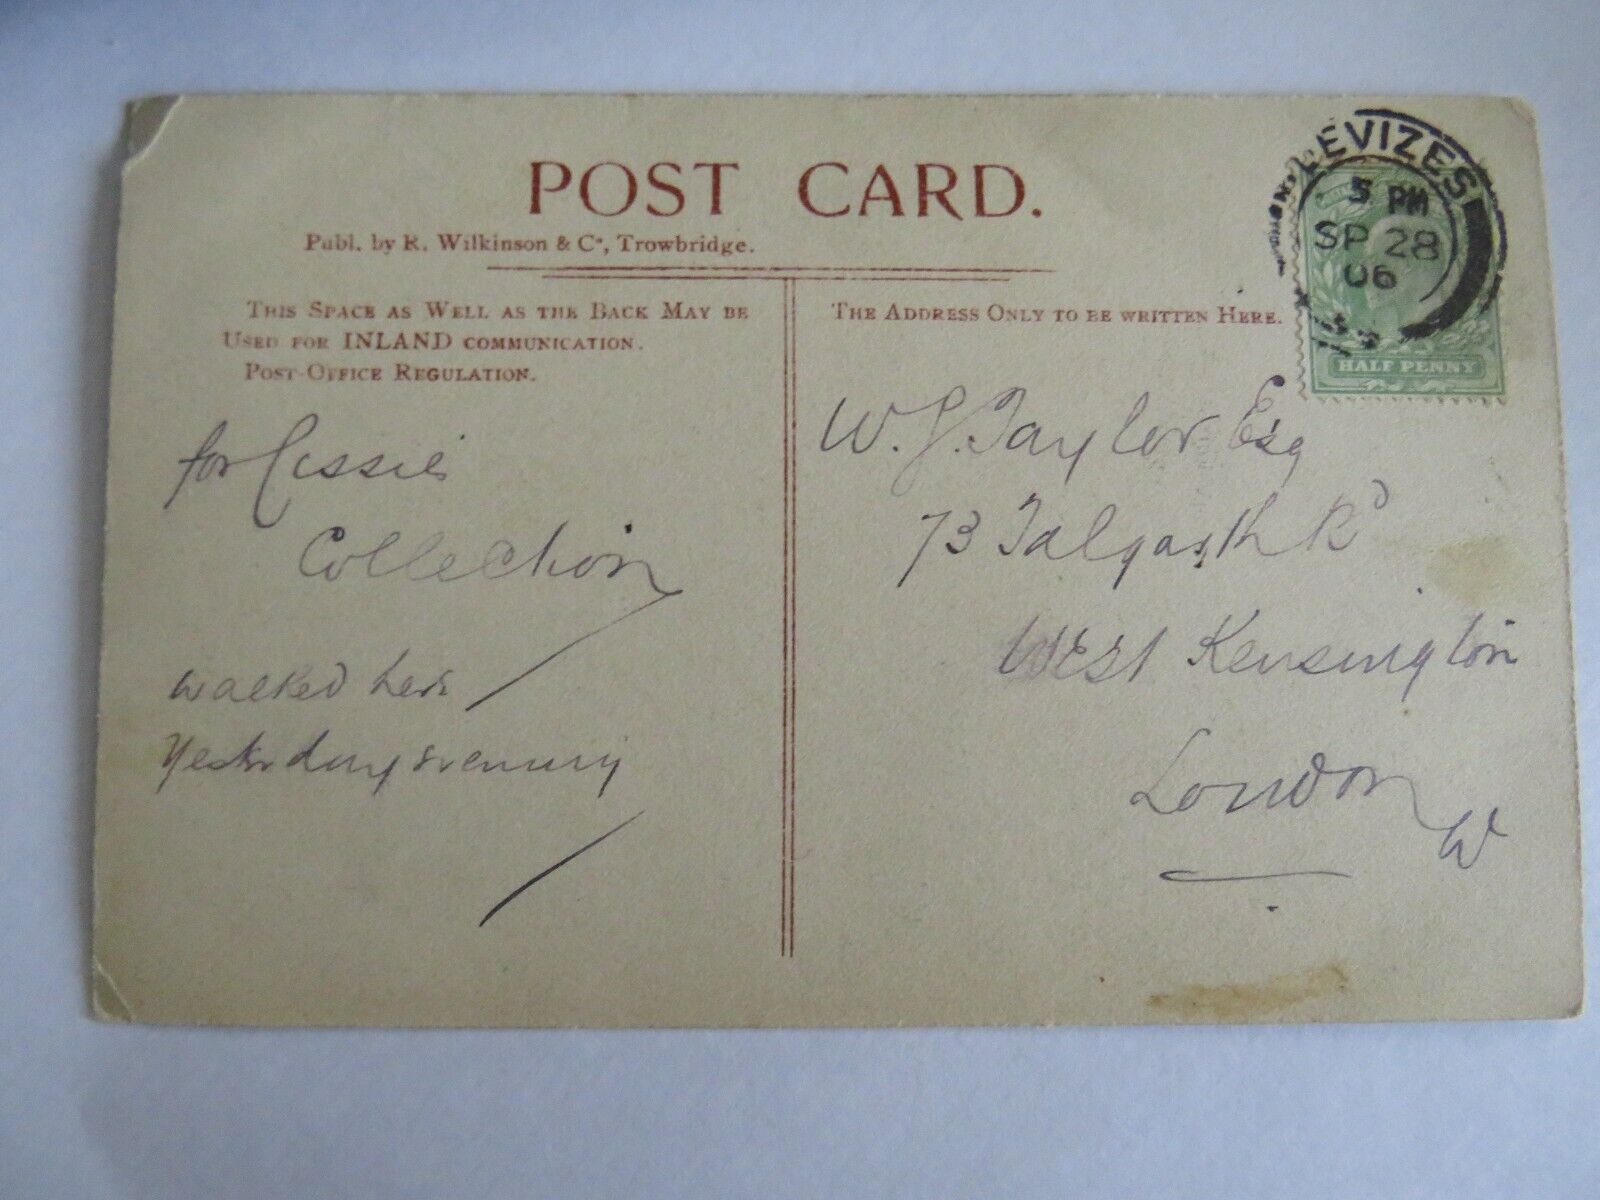 POST CARD.
Publ. by R. Wilkinson & Co, Trowbridge.
THIS SPACE AS WELL AS THE BACK MAY BE
USED FOR INLAND COMMUNICATION.
POST-OFFICE REGULATION.
for Cissie
Collection
walked here
Yesterday evening
THE ADDRESS ONLY TO BE WRITTEN HERE.
W. J. Taylor Esq
73 Talgarth Rd
West Kensington
London
W
DEVIZES
5 PM
SP 28
06
HALF PENNY